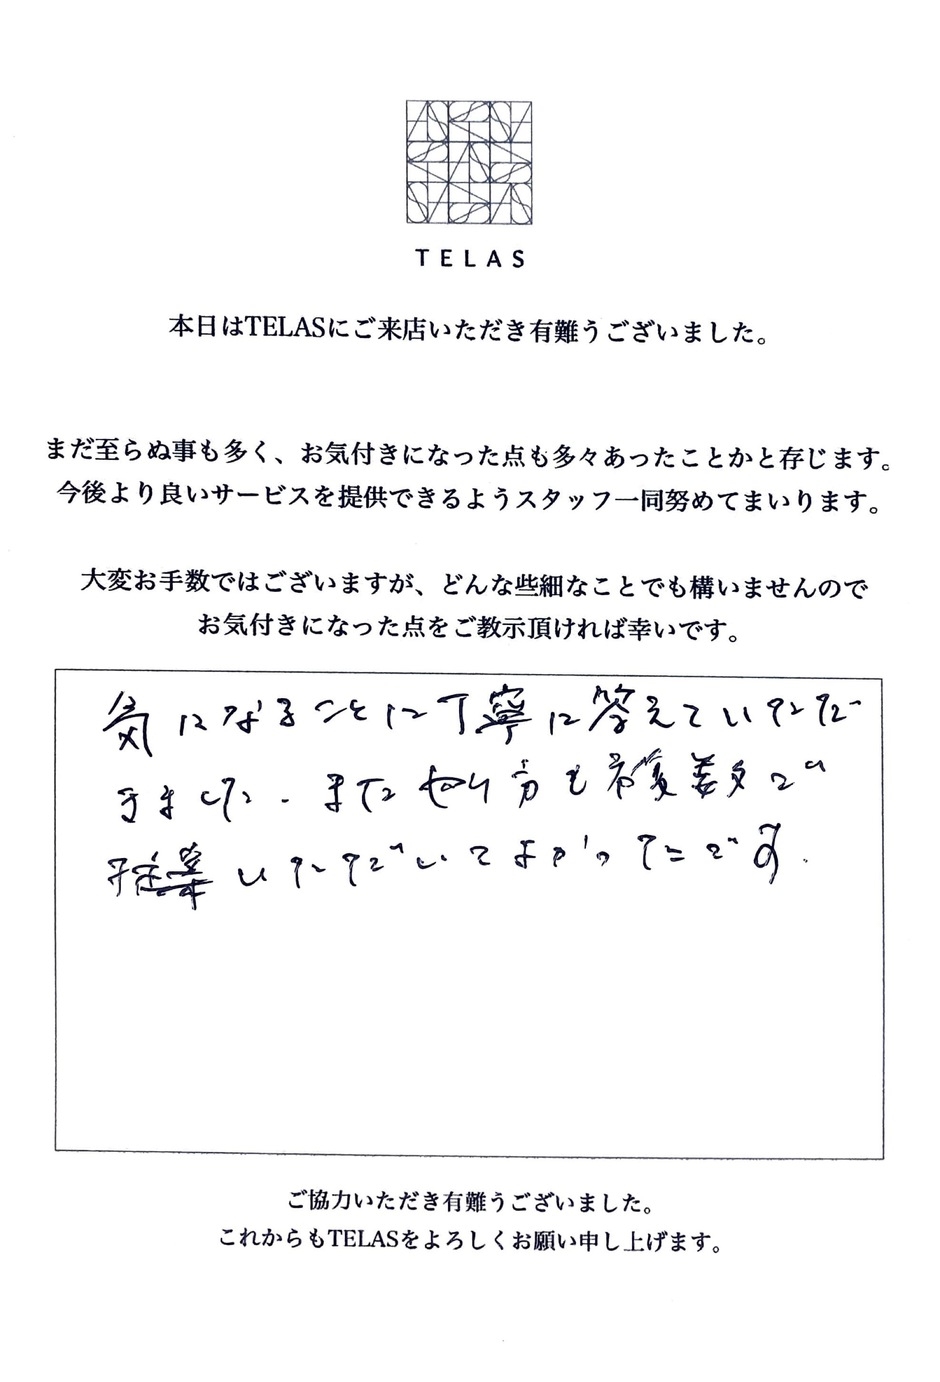 TELAS
本日はTELASにご来店いただき有難うございました。
まだ至らぬ事も多く、お気付きになった点も多々あったことかと存じます。
今後より良いサービスを提供できるようスタッフ一同努めてまいります。
大変お手数ではございますが、どんな些細なことでも構いませんので
お気付きになった点をご教示頂ければ幸いです。
気になることに丁寧に答えていただ
きました。またやり方も複数で
提案いただいてよかったです.
ご協力いただき有難うございました。
これからもTELASをよろしくお願い申し上げます。